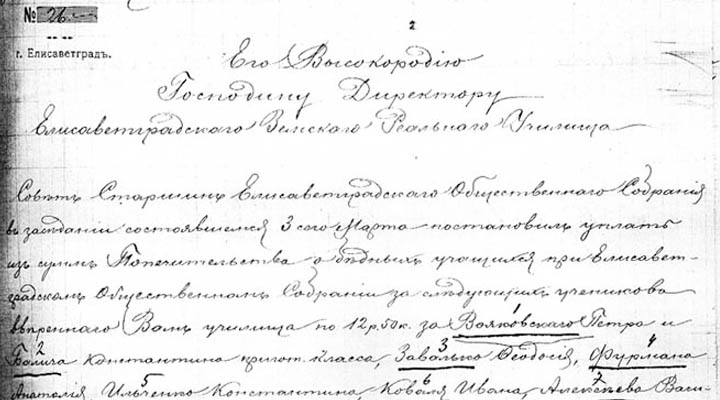 № 26.—
2
г. Елисаветградъ.
Его Высокородію
Господину Директору
Елисаветградскаго Земскаго Реальнаго Училища
Совѣтъ Старшинъ Елисаветградскаго Общественнаго Собранія
въ засѣданіи состоявшемся 3 сего Марта постановилъ уплатить
изъ суммъ Попечительства о бѣдныхъ учащихся при Елисавет-
градскомъ Общественномъ Собраніи за слѣдующихъ учениковъ
ввѣреннаго Вамъ училища по 12 р. 50 к. за Вояковскаго 1 Петра и
2 Константина пригот. класса, Завалько 3 Ѳеодосія, Фурмана 4
Анатолія, Ильченко 5 Константина, Коваля 6 Ивана, Алексѣева 7 Васи-